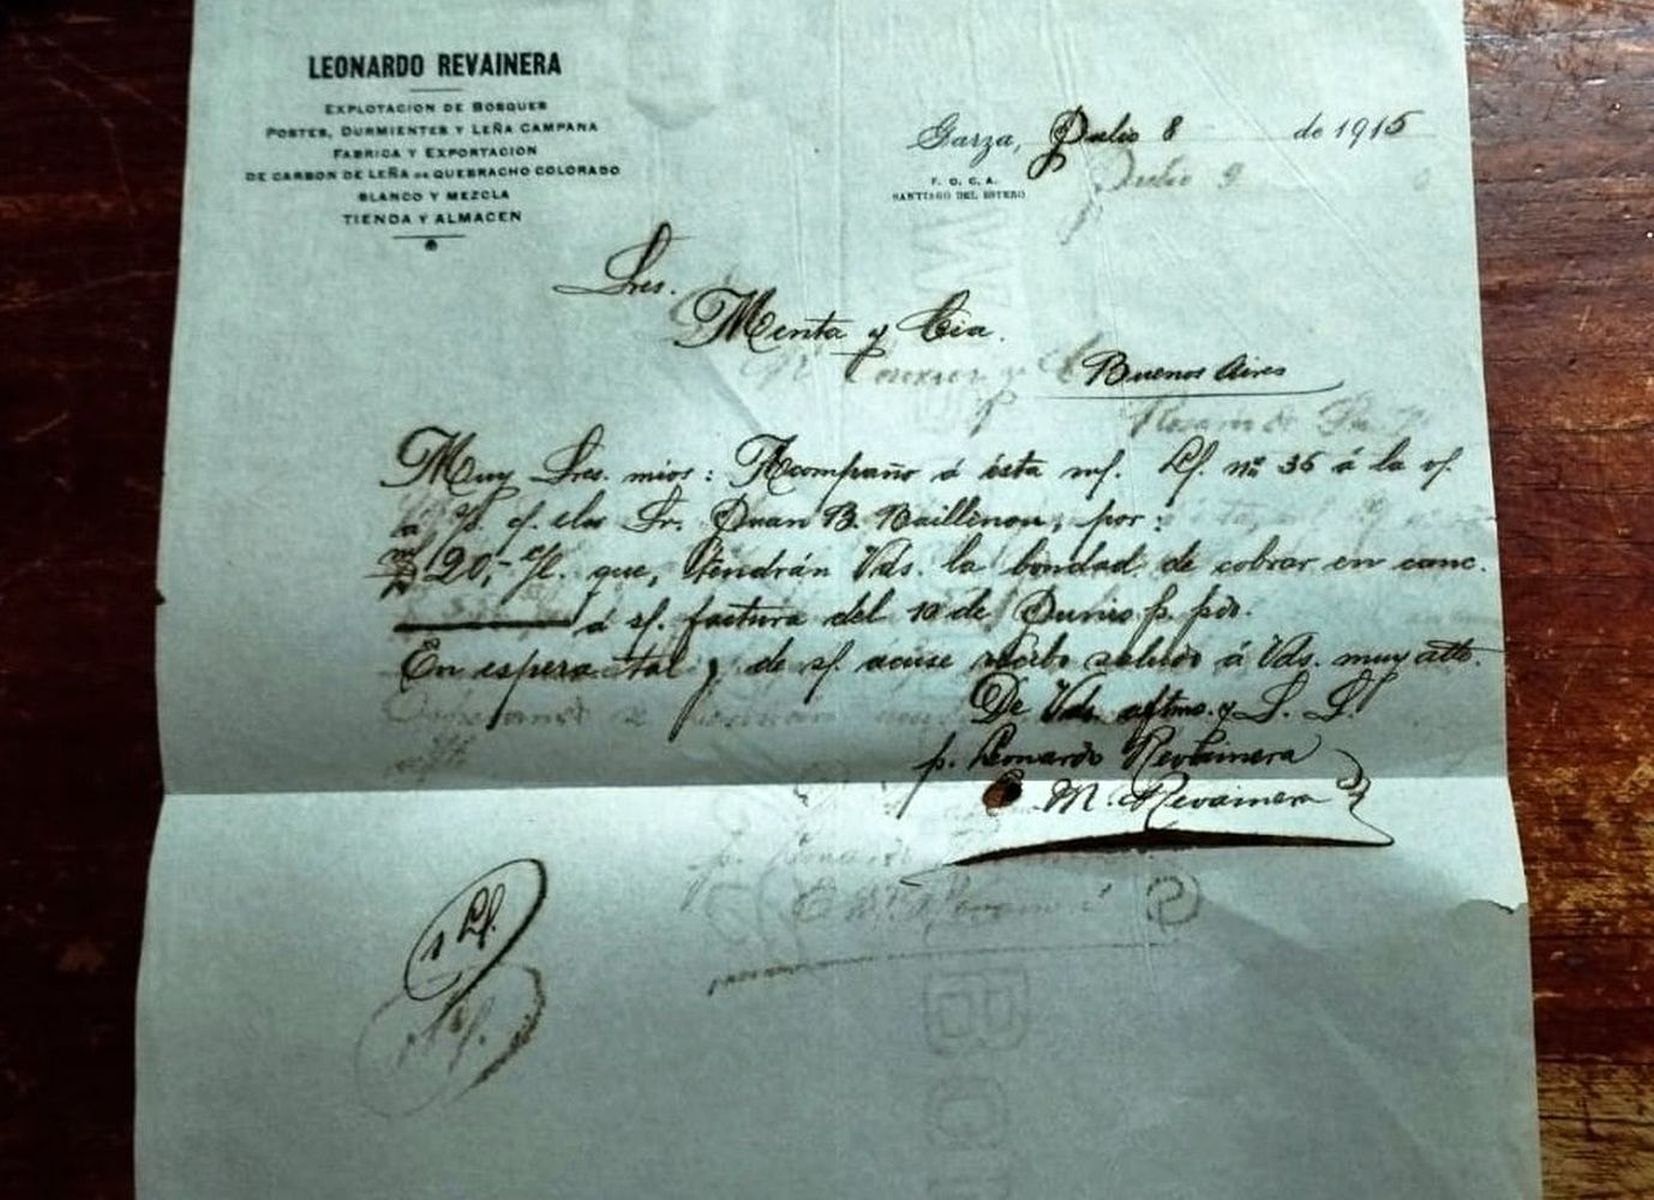 LEONARDO REVAINERA
EXPLOTACION DE BOSQUES
POSTES, DURMIENTES Y LEÑA CAMPANA
FABRICA Y EXPORTACION
DE CARBON DE LEÑA DE QUEBRACHO COLORADO
BLANCO Y MEZCLA
TIENDA Y ALMACEN
Garza, Julio 8 de 1915
F. C. C. A.
SANTIAGO DEL ESTERO
Julio 9
Sres.
Menta y Cia.
Buenos Aires
Rosario de Sta.
Muy Sres. mios: Acompaño á ésta m/. L/. nº 36 á la o/.
Sr. Juan B. por:
20,- que, tendrán Vds. la bondad de cobrar en canc.
á s/. factura del 10 de Junio p. pdo.
En espera tal y de s/. acuse recibo saludo á Vds. muy atte.
De Vds. aftmo. y S. S.
p. Leonardo Revainera
M. Revainera
1 L/.